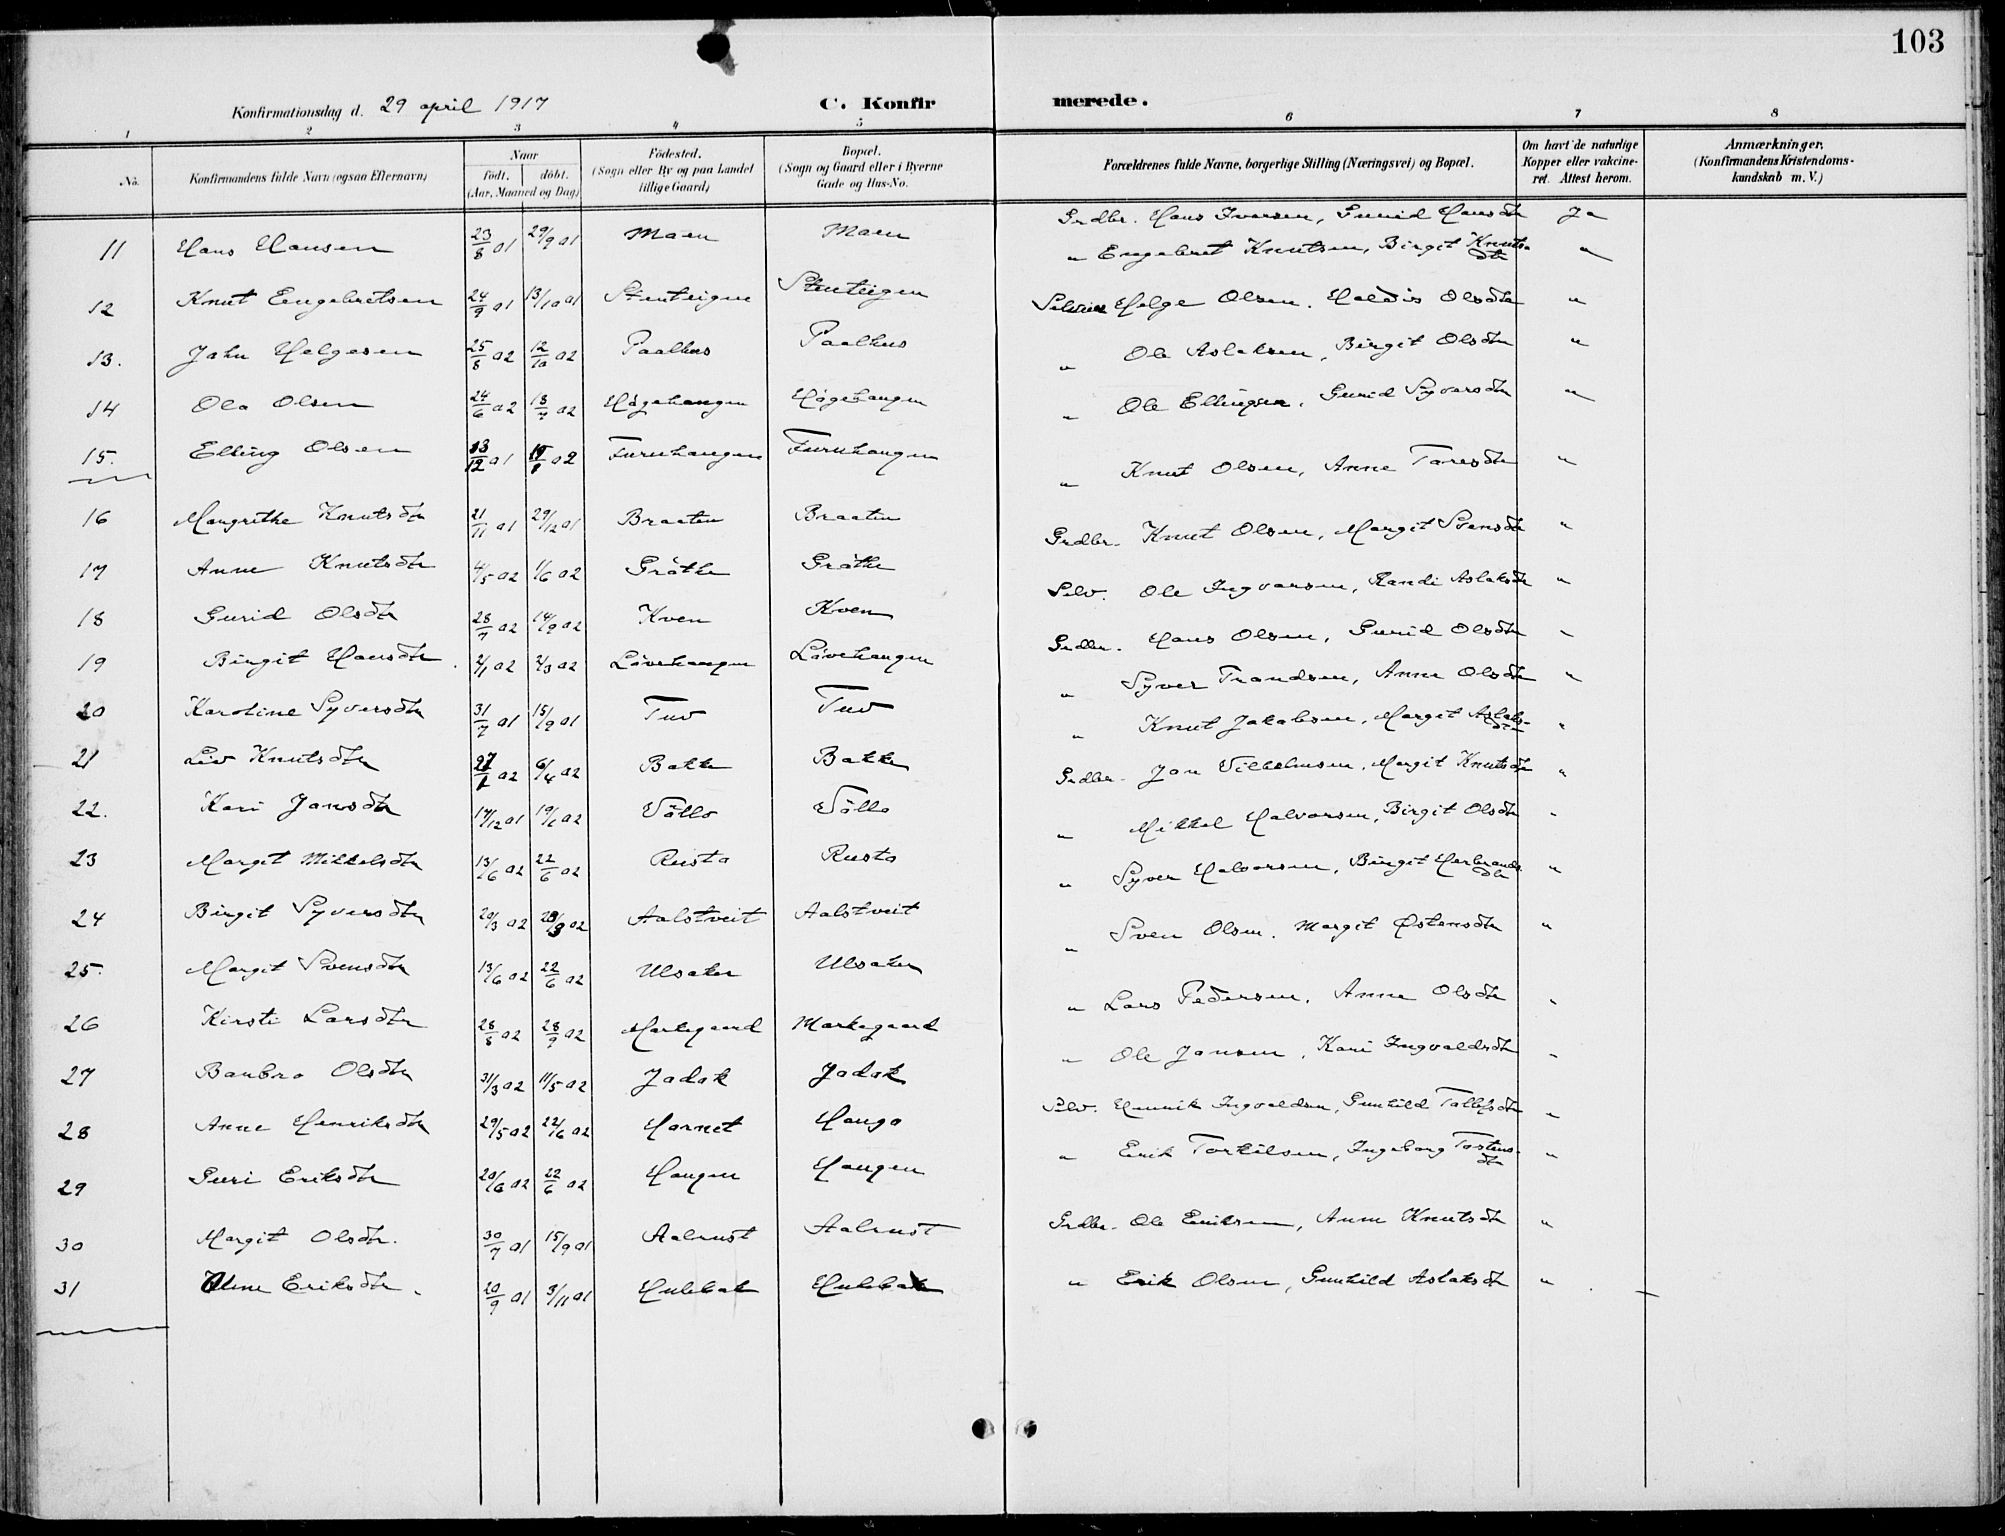 103
Konfirmationsdag d. 29 april 1917
C. Konfirmerede.
1 2 3 4 5 6 7 8
No. Konfirmandens fulde Navn (ogsaa Efternavn) Naar født. døbt. (Aar, Maaned og Dag) Födested. (Sogn eller By og paa Landet tillige Gaard) Bopæl. (Sogn og Gaard eller i Byerne Gade og Hus-No. Forældrenes fulde Navne, borgerlige Stilling (Næringsvei) og Bopæl. Om havt de naturlige Kopper eller vakcineret. Attest herom. Anmærkninger. (Konfirmandens Kristendomskundskab m. V.)
11 Hans Hansen 23/8 01 29/9 01 Moen Moen Grdbr. Hans Iversen, Gunid Hansdtr Ja
12 Knut Engebretsen 24/9 01 13/10 01 Stenteigen Stenteigen " Engebret Knutsen, Birgit Knutsdtr "
13. Jahn Helgesen 25/8 02 12/10 02 Paalhus Paalhus Selveier Helge Olsen. Haldis Olsdtr "
14 Ola Olsen 24/6 02 13/7 02 Høgehaugen Høgehaugen " Ole Aslaksen, Birgit Olsdtr "
15. Elling Olsen 13/12 01 Furuhaugen Furuhaugen " Ole Ellingsen, Gurid Syversdtr "
16 Margrethe Knutsdtr 21/11 01 29/12 01 Braaten Braaten " Knut Olsen, Anne Toresdtr "
17 Anne Knutsdtr 4/5 02 1/6 02 Gröthe Gröthe Grdbr. Knut Olsen, Margit Svensdtr "
18 Gurid Olsdtr 28/7 02 14/9 02 Kven Kven Selv. Ole Ingvarsen, Randi Aslaksdtr "
19 Birgit Hansdtr. 2/1 02 2/3 02 Lövehaugen Lövehaugen Grdbr. Hans Olsen, Gurid Olsdtr "
20 Karoline Syversdtr 31/7 01 15/9 01 Tuv Tuv " Syver Trondsen, Anne Olsdtr "
21 Liv Knutsdtr 27/1 02 6/4 02 Bakke Bakke " Knut Jakobsen, Margit Aslaksdtr "
22. Kari Jonsdtr 17/12 01 19/1 02 Völlo Völlo Grdbr. Jon Vilhelmsen, Margit Knutsdtr "
23 Margit Mikkelsdtr 13/6 02 22/6 02 Rusto Rusto " Mikkel Halvorsen, Birgit Olsdtr "
24 Birgit Syversdtr 20/3 02 28/3 02 Aalstveit Aalstveit " Syver Halvorsen, Birgit Herbrandsdtr "
25. Margit Svensdtr 13/6 02 22/6 02 Ulsaker Ulsaker " Sven Olsen. Margit Østensdtr "
26 Kirsti Larsdtr 28/8 02 28/9 02 Markegaard Markegaard " Lars Pedersen, Anne Olsdtr "
27 Barbro Olsdtr 31/3 02 11/5 02 Jadok Jadok " Ole Jonsen, Kari Ingvaldsdtr "
28 Anne Henriksdtr 29/5 02 22/6 02 Hornet Haugo Selv. Henrik Ingvaldsen, Gunhild Tollefsdtr "
29 Guri Eriksdtr 20/6 02 22/6 02 Haugen Haugen " Erik Torkilsen, Ingeborg Tostensdtr "
30 Margit Olsdtr. 30/7 01 15/9 01 Aalrust Aalrust Grdbr. Ole Eriksen, Anne Knutsdtr "
31 Anne Eriksdtr. 20/9 01 3/11 01 Hulbak Hulbak " Erik Olsen, Gunhild Aslaksdtr "